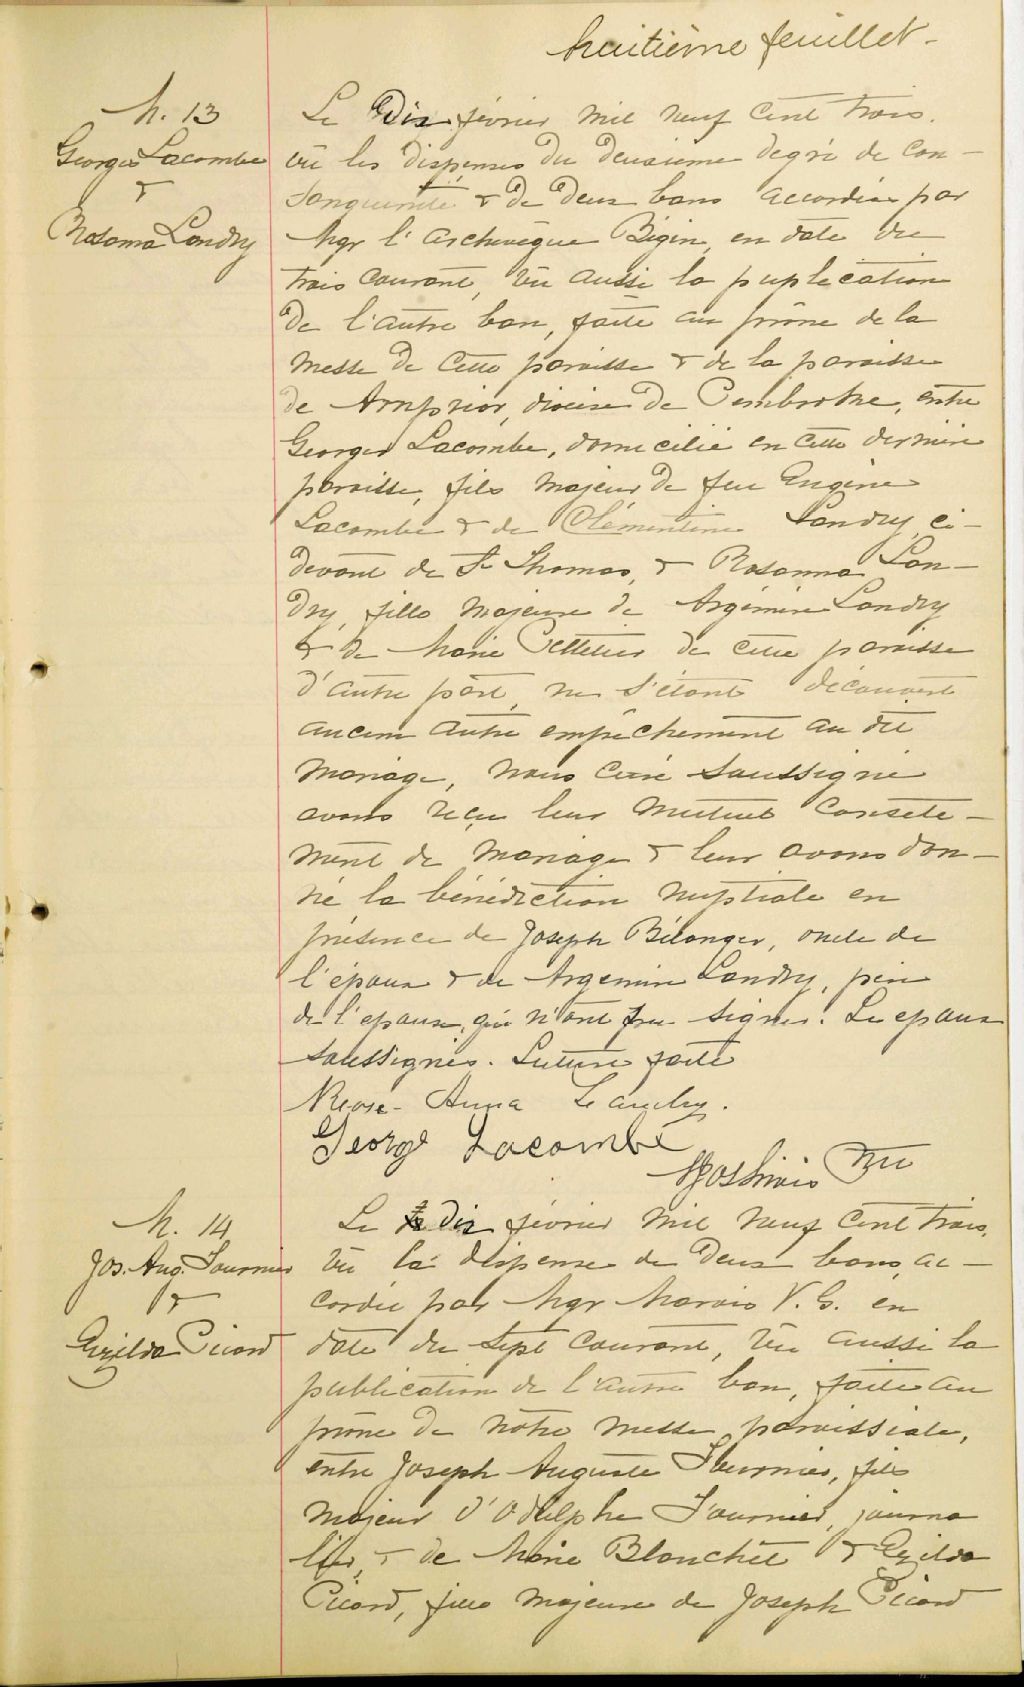 huitième feuillet -
M. 13
Georges Lacombe
&
Rosanna Landry
Le Dix février mil neuf cent trois.
vu les dispenses du deuxième degré de con-
sanguinité & de deux bans accordées par
Mgr l'archevêque Bégin, en date du
trois courant, vu aussi la puplication
de l'autre ban, faite au prône de la
messe de cette paroisse & de la paroisse
de Arnprior, diocèse de Pembroke, entre
Georges Lacombe, domicilié en cette dernière
paroisse, fils majeur de feu Eugène
Lacombe & de Clémentine Landry, ci-
devant de St Thomas, & Rosanna Lan-
dry, fille majeure de Argémire Landry
& de Marie Pelletier de cette paroisse
d'autre part, ne s'étant découvert
aucun autre empêchement au dit
mariage, nous curé soussigné
avons reçu leur mutuel consete-
ment de mariage & leur avons don-
né la bénédiction nuptiale en
présence de Joseph Bélanger, oncle de
l'époux & de Argemire Landry, père
de l'epouse, qui n'ont su signer. Les epoux
soussignés. Lecture faite
Rose-Anna Landry.
George Lacombe
Ptre
M. 14
Jos. Aug. Fournier
&
Exilda Picard
Le dix février mil neuf cent trois,
vu la dispense de deux bans ac-
cordée par Mgr Marois V. G. en
date du sept courant, vu aussi la
publication de l'autre ban, faite au
prône de notre messe paroissiale,
entre Joseph Auguste Fournier, fils
majeur d'Odelphe Fournier, journa
lier, & de Marie Blanchet & Exilda
Picard, fille majeure de Joseph Picard